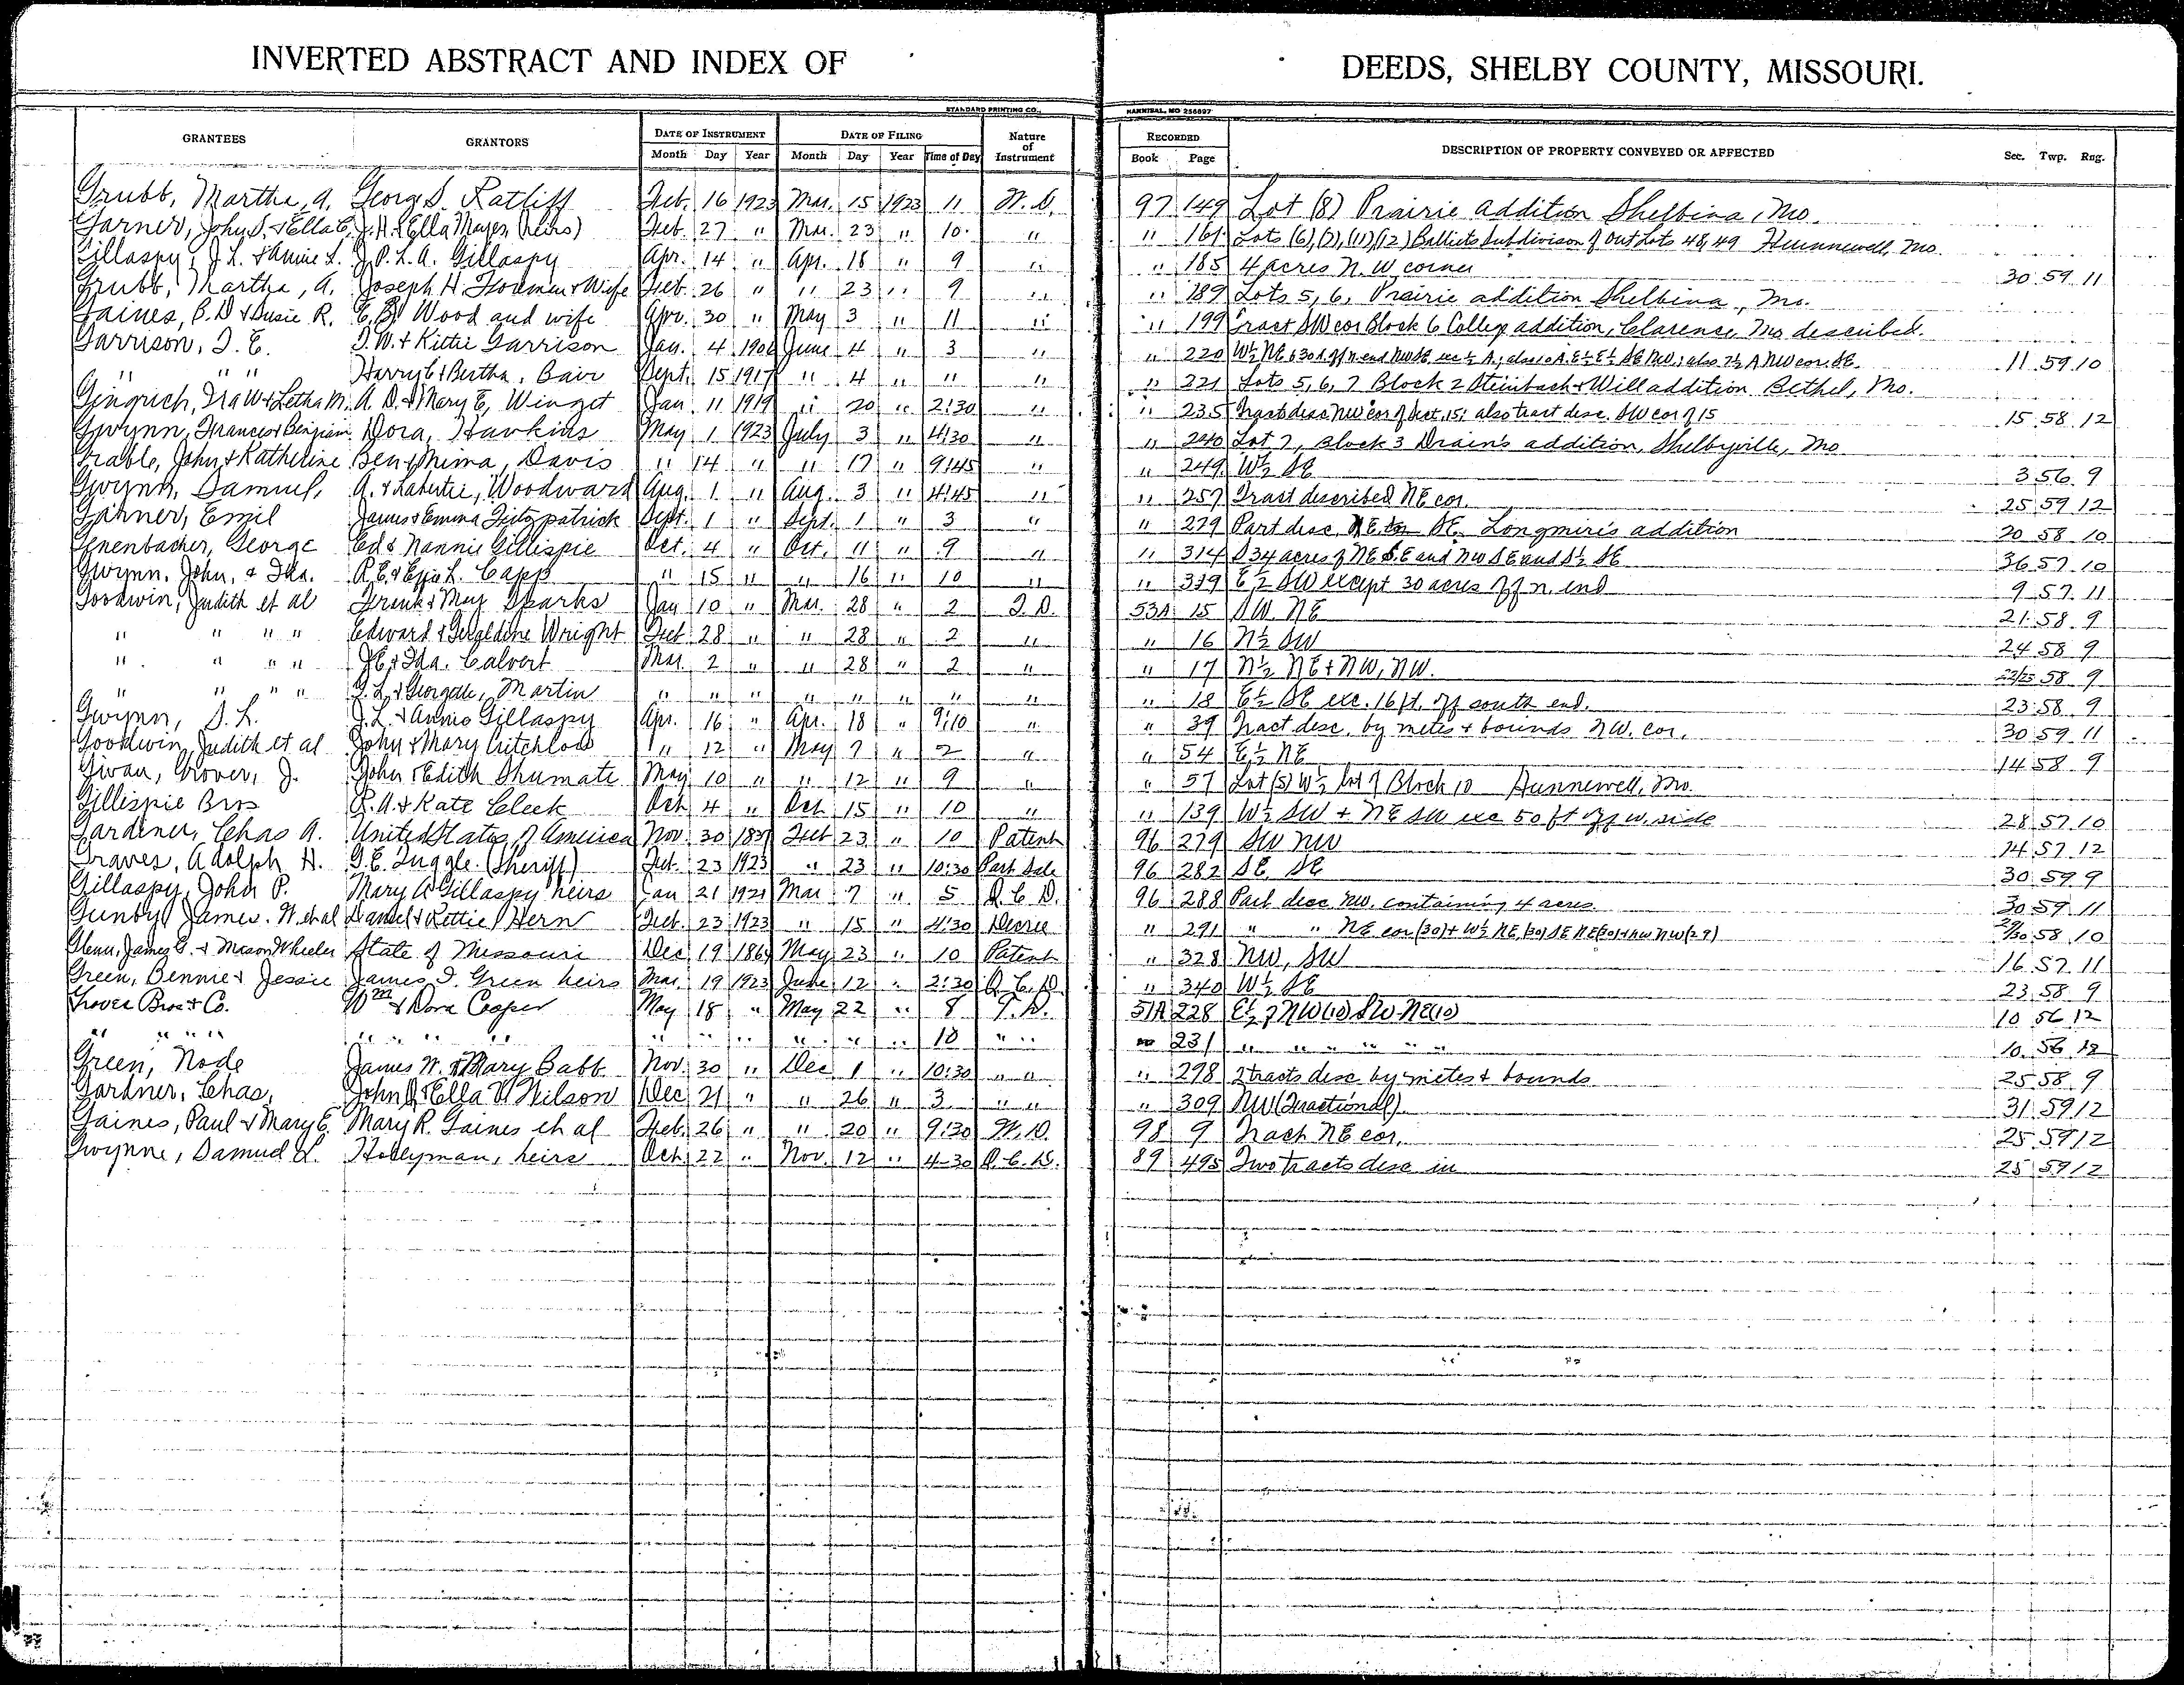 INVERTED ABSTRACT AND INDEX OF DEEDS, SHELBY COUNTY, MISSOURI.
STANDARD PRINTING CO., HANNIBAL, MO 256697
GRANTEES GRANTORS DATE OF INSTRUMENT DATE OF FILING Nature of Instrument RECORDED DESCRIPTION OF PROPERTY CONVEYED OR AFFECTED Sec. Twp. Rng.
Month Day Year Month Day Year Time of Day Book Page
Grubb, Martha, A. George S. Ratliff Feb. 16 1923 Mar. 15 1923 11 W. D. 97 149 Lot (8) Prairie addition Shelbina, Mo.
Garner, John S. & Ella C. J. H. & Ella Mayes (heirs) Feb. 27 " Mar. 23 " 10 " " 161 Lots (6), (7), (11), (12) Subdivison of Out Lots 48, 49 Hunnewell, Mo.
Gillaspy, J. L. & Annie L. J. P. L. A. Gillaspy Apr. 14 " Apr. 18 " 9 " " 185 4 acres N. W corner 30 59 11
Grubb, Martha, A. Joseph H. & Wife Feb. 26 " " 23 " 9 " " 189 Lots 5, 6, Prairie addition Shelbina, Mo.
Gaines, B. D & Susie R. E. B. Wood and wife Apr. 30 " May 3 " 11 " " 199 Tract SW cor Block 6 College addition, Clarence, Mo described.
Garrison, I. E. I. W. & Kittie Garrison Jan. 4 1906 June 4 " 3 " " 220 W½ NE & 30 A off n end NW SE exc ½ A; also 10 A. E½ E½ SE NW; also 7½ A NW cor. SE. 11 59 10
" " " Harry C & Bertha, Bair Sept. 15 1917 " 4 " 11 " " 221 Lots 5, 6, 7 Block 2 Steinbach & Will addition Bethel, Mo.
Gingrich, Ira W & Letha M. A. D. & Mary E, Winget Jan. 11 1919 " 20 " 2:30 " " 235 Tract desc NW cor of Sect, 15; also tract desc. SW cor of 15 15 58 12
Gwynn, Frances & Benjiam Dora, Hawkins May 1 1923 July 3 " 4:30 " " 240 Lot 7, Block 3 Drains addition, Shelbyville, Mo
Grable, John & Katherine Ben & Mima, Davis " 14 " " 17 " 9:45 " " 249 W½ SE 3 56 9
Gwynn, Samuel, A. & Woodward Aug. 1 " Aug. 3 " 4:45 " " 257 Tract described NE cor. 25 59 12
Gahner, Emil James & Emma Fitzpatrick Sept. 1 " Sept. 1 " 3 " " 279 Part desc. SE. Longmire's addition 20 58 10
Genenbacher, George Ed & Nannie Gillispie Oct. 4 " Oct. 11 " 9 " " 314 S 34 acres of NE S.E and NW SE and S½ SE 36 57 10
Gwynn, John, & Ida. R. E. & Effie L. Capp " 15 " " 16 " 10 " " 319 E½ SW except 30 acres off n. end 9 57 11
Goodwin, Judith et al Frank & May Sparks Jan 10 " Mar. 28 " 2 T. D. 53A 15 SW. NE 21 58 9
" " " " Edward & Geraldine Wright Feb 28 " " 28 " 2 " " 16 N½ SW 24 58 9
" " " " J E & Ida. Calvert Mar. 2 " " 28 " 2 " " 17 N½ NE & NW, NW. 22/23 58 9
" " " " G. L. & Georgette, Martin " " " " " " " " " 18 E½ SE exc. 16 ft. off south end. 23 58 9
Gwynn, S. L. J. L. & Annie Gillaspy Apr. 16 " Apr. 18 " 9:10 " " 39 Tract desc. by metes & bounds NW. cor. 30 59 11
Goodwin, Judith et al John & Mary Critchlow " 12 " May 7 " 2 " " 54 E½ NE 14 58 9
Givan, Grover, J. John & Edith Shumate May 10 " " 12 " 9 " " 57 Lot (5) W½ lot 7 Block 10 Hunnewell, Mo.
Gillispie Bros R. A. & Kate Cleek Oct 4 " Oct 15 " 10 " " 139 W½ SW + NE SW exc 50 ft off w. side 28 57 10
Gardener, Chas A. United States of America Nov. 30 1837 Feb 23 " 10 Patent 96 279 SW NW 14 57 12
Graves, Adolph H. G. E. Tuggle (Sheriff) Feb. 23 1923 " 23 " 10:30 Part Sale 96 282 SE SE 30 59 9
Gillaspy, John P. Mary A Gillaspy heirs Jan 21 1921 Mar 7 " 5 Q. C. D. 96 288 Part desc NW. containing 4 acres. 30 59 11
Gunby, James. W. et al Daniel & Kettie Hern Feb. 23 1923 " 15 " 4:30 Decree " 291 " " NE cor (30) + W½ NE (30) SE NE (30) + NW NW (29) 29/30 58 10
Glenn, James G. & Mason Wheeler State of Missouri Dec 19 1864 May 23 " 10 Patent " 328 NW, SW 16 57 11
Green, Bennie & Jessie James I. Green heirs Mar. 19 1923 June 12 " 2:30 Q. C. D. " 340 W½ SE 23 58 9
Grover Bros & Co. Wm & Dora Cooper May 18 " May 22 " 8 T. D. 51A 228 E½ of NW (10) SW NE (10) 10 56 12
" " " " " " " " " " " " " 10 " " " 231 " " " " " " 10 56 12
Green, Node James W. & Mary Babb Nov. 30 " Dec 1 " 10:30 " " " 298 2 tracts desc by metes & bounds 25 58 9
Gardner, Chas, John J & Ella V Wilson Dec 21 " " 26 " 3 " " " 309 NW (Fractional) 31 59 12
Gaines, Paul & Mary E. Mary R. Gaines et al Feb. 26 " " 20 " 9:30 W. D. 98 9 Tract NE cor. 25 59 12
Gwynne, Samuel L. Holyman, heirs Oct. 22 " Nov. 12 " 4-30 Q. C. D. 89 495 Two tracts desc in 25 59 12